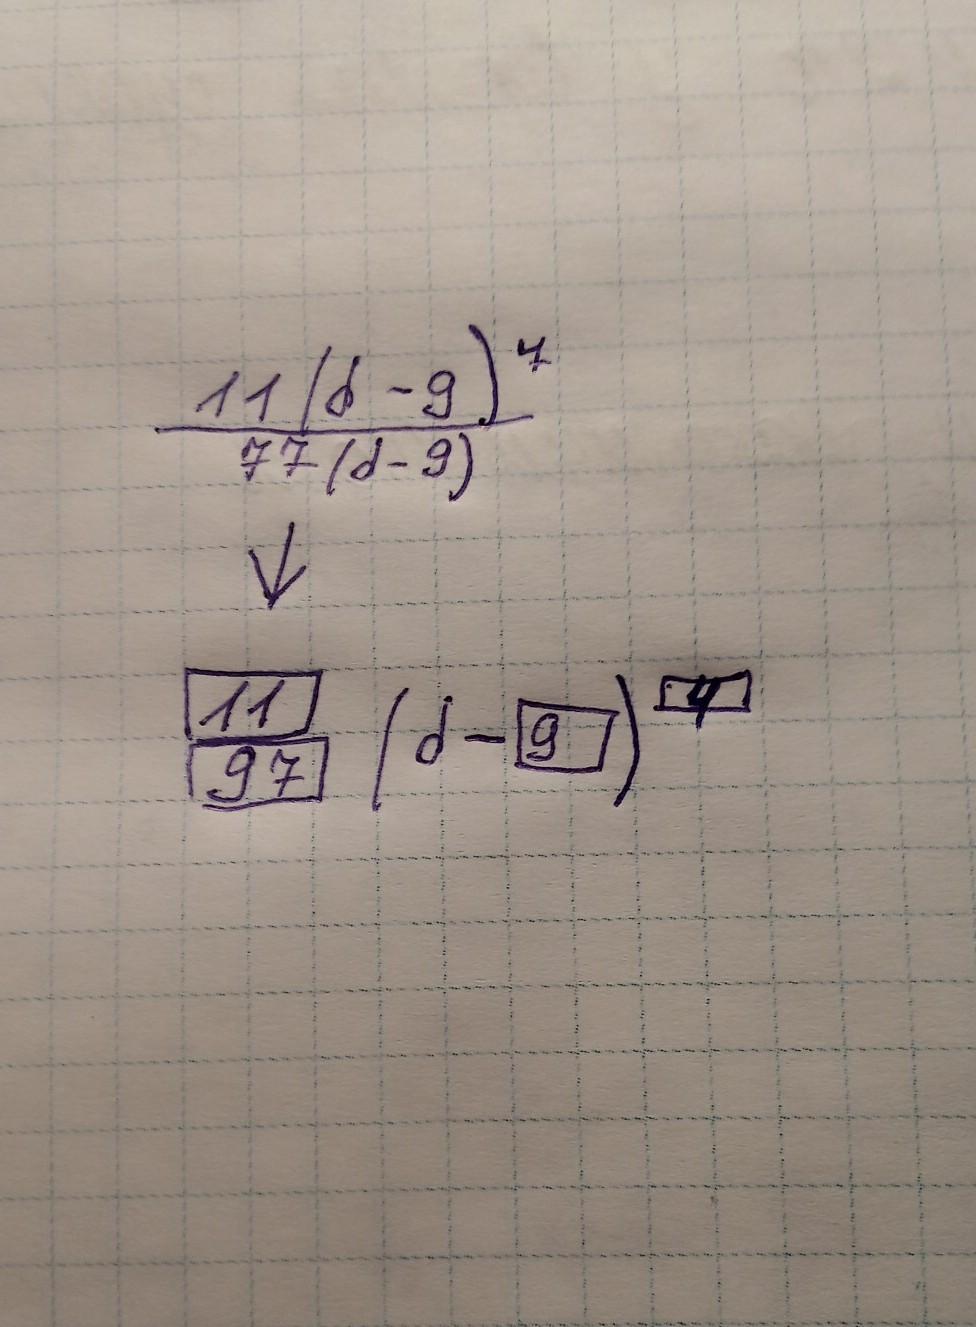 11(d-9)⁴
77(d-9)
↓
11
97 (d-9)⁴